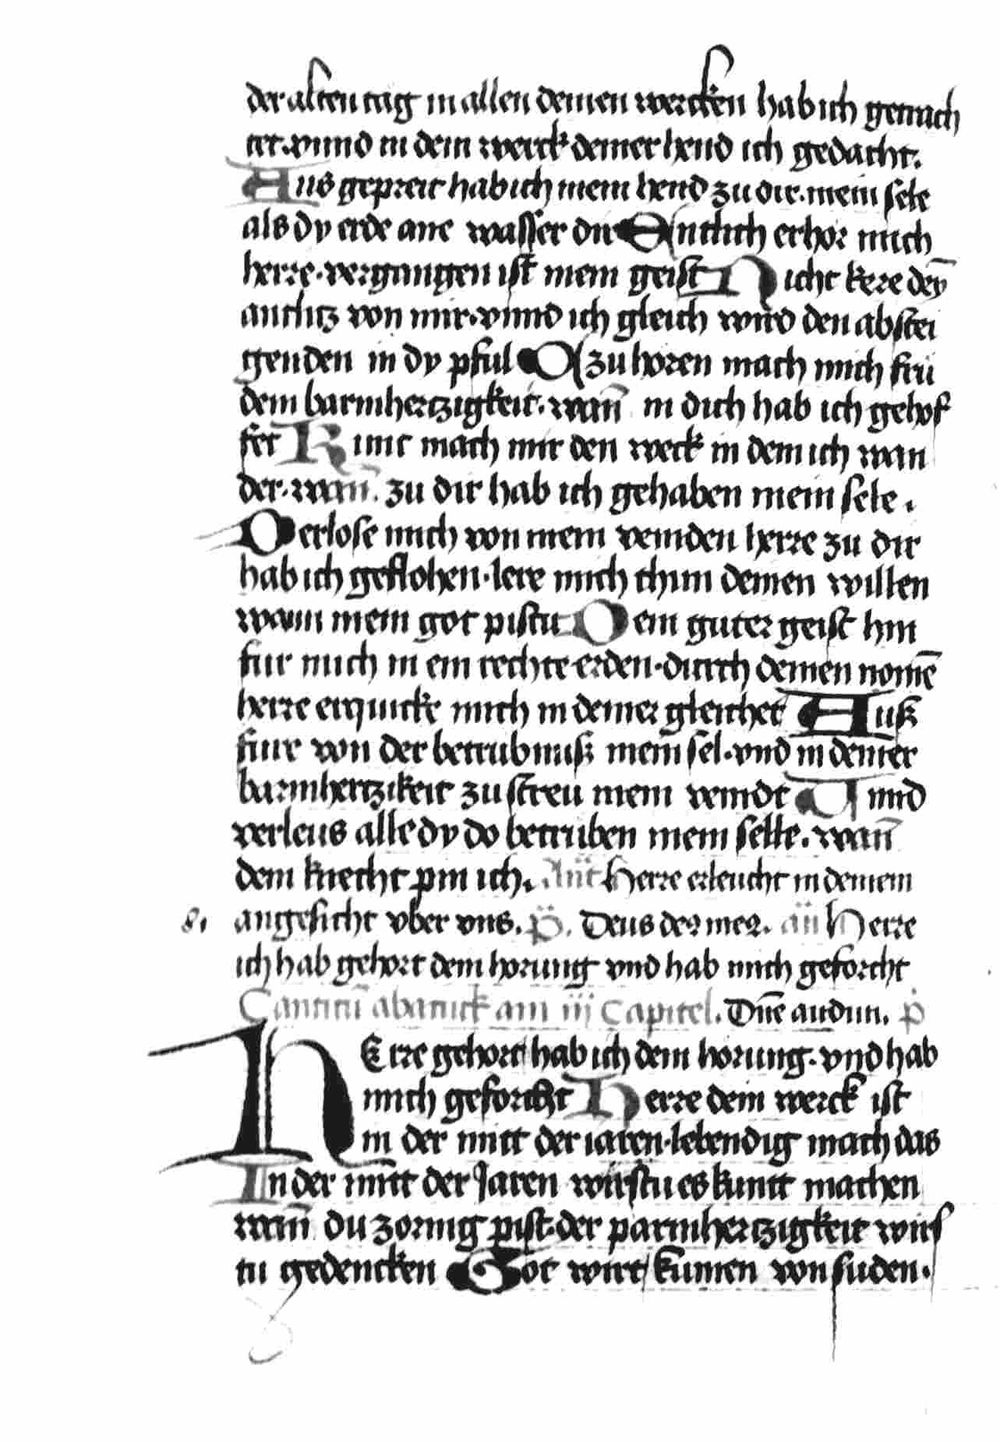 der alten tag in allen deinen wercken hab ich getrach
tet. vnnd in dem werck deiner hend ich gedacht.
Aus gepreit hab ich mein hend zu dir. mein sele
als dy erde ane wasser dir Entlich erhor mich
herre. vergangen ist mein geist Nicht kere dey̅
antlitz von mir. vnnd ich gleich wird den abstei
genden in dy pful Zu horen mach mich fru
dein barmhertzigkeit. wan̅ in dich hab ich gehof
fet Kunt mach mir den weck in dem ich wan
der. wan̅ zu dir hab ich gehaben mein sele.
Derlose mich von mein veinden herre zu dir
hab ich geflohen. lere mich thun deinen willen
wann mein got pistu Dein guter geist hin
fur mich in ein rechte erden. durch deinen nome̅
herre erquicke mich in deiner gleichet Auß
fure von der betrubnuß mein sel. vnd in deiner
barmhertzikeit zustreu mein veindt Vnnd
verleus alle dy do betruben mein selle. wan̅
dein knecht pin ich. Ant̅ Herre erleucht in deinem
angesicht vber vns. p̅. Deus deꝰ meꝰ. an̅ Herre
ich hab gehort dein horung vnd hab mich geforcht
Canticu̅ abacuck am iij Capitel. Dn̅e audiui. p̅
HErre gehort hab ich dein horung. vnd hab
mich geforcht Herre dein werck ist
in der mitt der iaren. lebendig mach das
In der mitt der Jaren wirstu es kuntt machen
wan̅ du zornig pist. der parmhertzigkeit wirs
tu gedencken Got wirt kumen von suden.